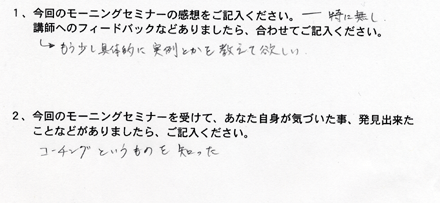 1、今回のモーニングセミナーの感想をご記入ください。 — 特に無し
講師へのフィードバックなどありましたら、合わせてご記入ください。
↳ もう少し具体的に実例とかを教えて欲しい.
2、今回のモーニングセミナーを受けて、あなた自身が気づいた事、発見出来た
ことなどがありましたら、ご記入ください。
コーチングというものを知った